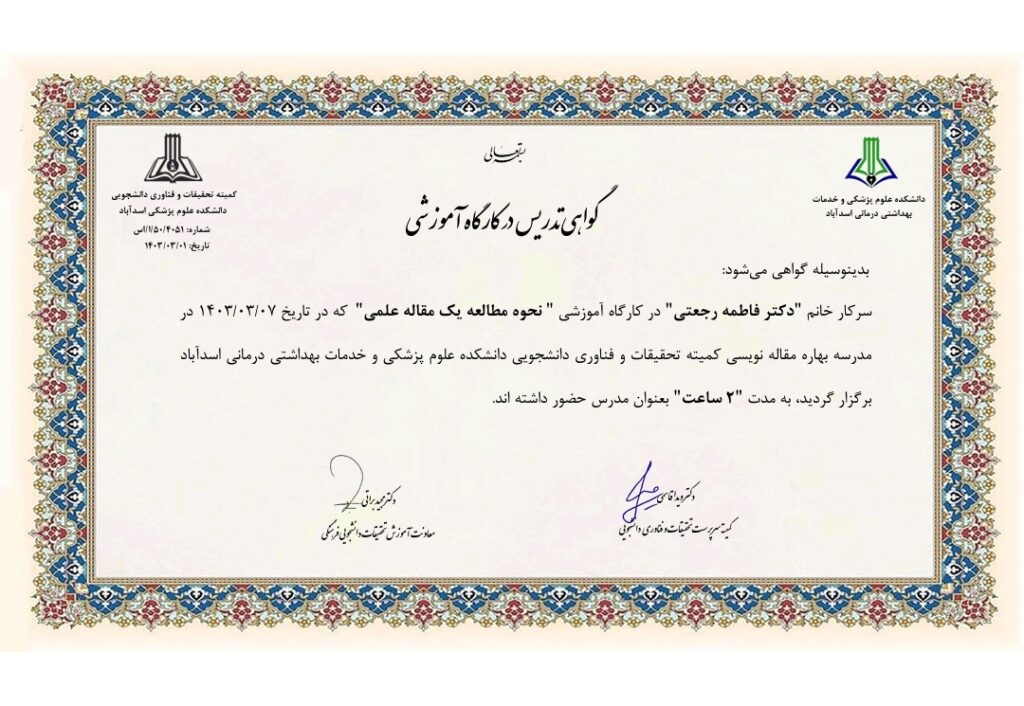 بسمه تعالی
دانشکده علوم پزشکی و خدمات
بهداشتی درمانی اسدآباد
کمیته تحقیقات و فناوری دانشجویی
دانشکده علوم پزشکی اسدآباد
شماره: ۴۰۵۱/۵۰/ا/اس
تاریخ: ۱۴۰۳/۰۳/۰۱
گواهی تدریس در کارگاه آموزشی
بدینوسیله گواهی می‌شود:
سرکار خانم "دکتر فاطمه رجعتی" در کارگاه آموزشی " نحوه مطالعه یک مقاله علمی" که در تاریخ ۱۴۰۳/۰۳/۰۷ در
مدرسه بهاره مقاله نویسی کمیته تحقیقات و فناوری دانشجویی دانشکده علوم پزشکی و خدمات بهداشتی درمانی اسدآباد
برگزار گردید، به مدت "۲ ساعت" بعنوان مدرس حضور داشته اند.
دکتر ویدا قاسمی
کمیته سرپرست تحقیقات و فناوری دانشجویی
دکتر مجید براتی
معاونت آموزش تحقیقات دانشجویی فرهنگی